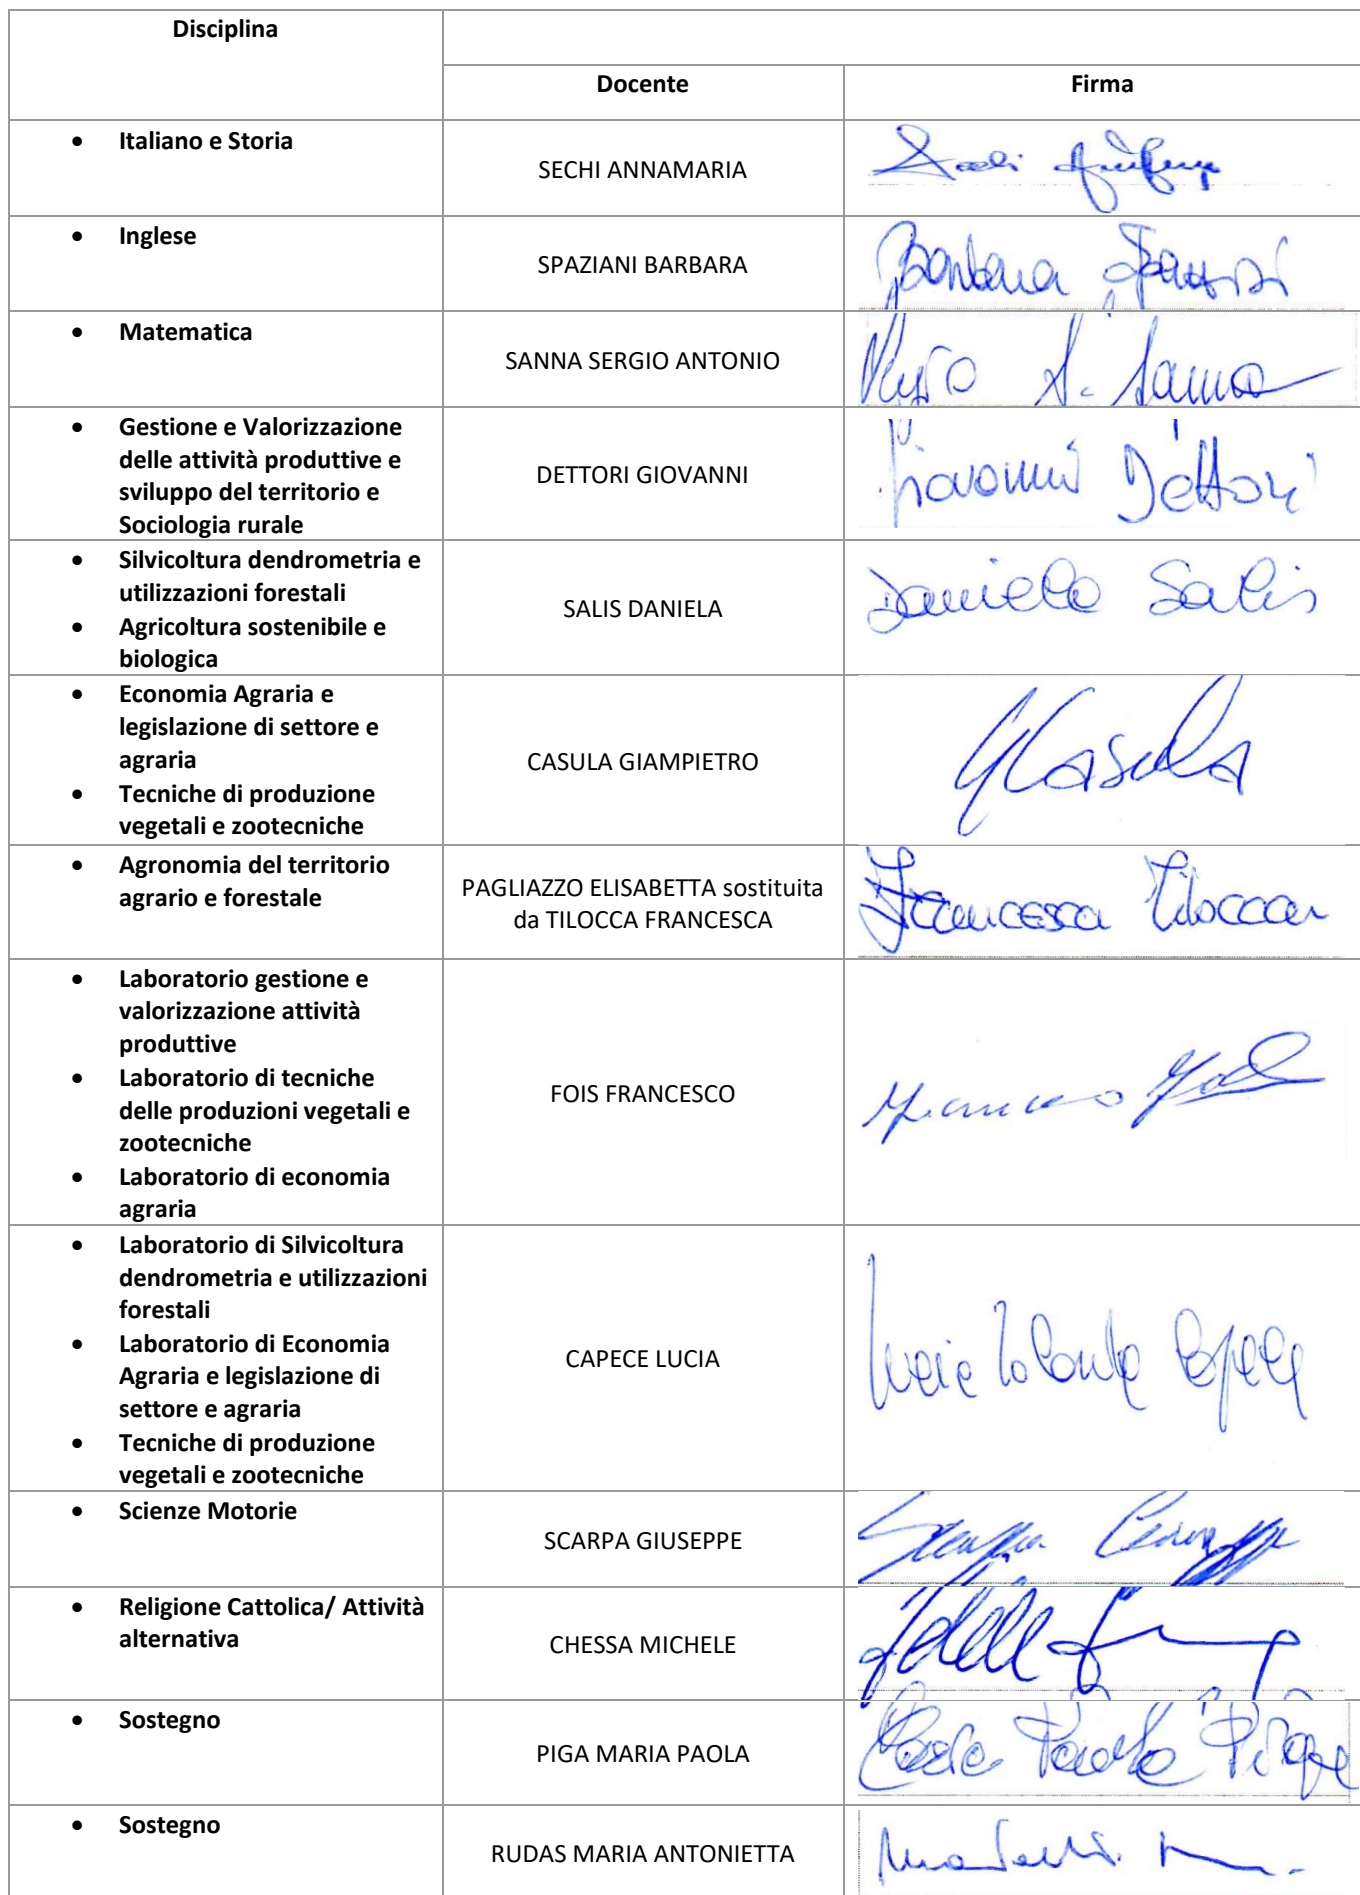 Disciplina
Docente
Firma
• Italiano e Storia
SECHI ANNAMARIA
• Inglese
SPAZIANI BARBARA
Barbara Spaziani
• Matematica
SANNA SERGIO ANTONIO
S. Sanna
• Gestione e Valorizzazione
delle attività produttive e
sviluppo del territorio e
Sociologia rurale
DETTORI GIOVANNI
Giovanni Dettori
• Silvicoltura dendrometria e
utilizzazioni forestali
• Agricoltura sostenibile e
biologica
SALIS DANIELA
Daniela Salis
• Economia Agraria e
legislazione di settore e
agraria
• Tecniche di produzione
vegetali e zootecniche
CASULA GIAMPIETRO
GCasula
• Agronomia del territorio
agrario e forestale
PAGLIAZZO ELISABETTA sostituita
da TILOCCA FRANCESCA
Francesca Tilocca
• Laboratorio gestione e
valorizzazione attività
produttive
• Laboratorio di tecniche
delle produzioni vegetali e
zootecniche
• Laboratorio di economia
agraria
FOIS FRANCESCO
Francesco
• Laboratorio di Silvicoltura
dendrometria e utilizzazioni
forestali
• Laboratorio di Economia
Agraria e legislazione di
settore e agraria
• Tecniche di produzione
vegetali e zootecniche
CAPECE LUCIA
Lucia Iolanda Capece
• Scienze Motorie
SCARPA GIUSEPPE
Scarpa Giuseppe
• Religione Cattolica/ Attività
alternativa
CHESSA MICHELE
• Sostegno
PIGA MARIA PAOLA
Maria Paola Piga
• Sostegno
RUDAS MARIA ANTONIETTA